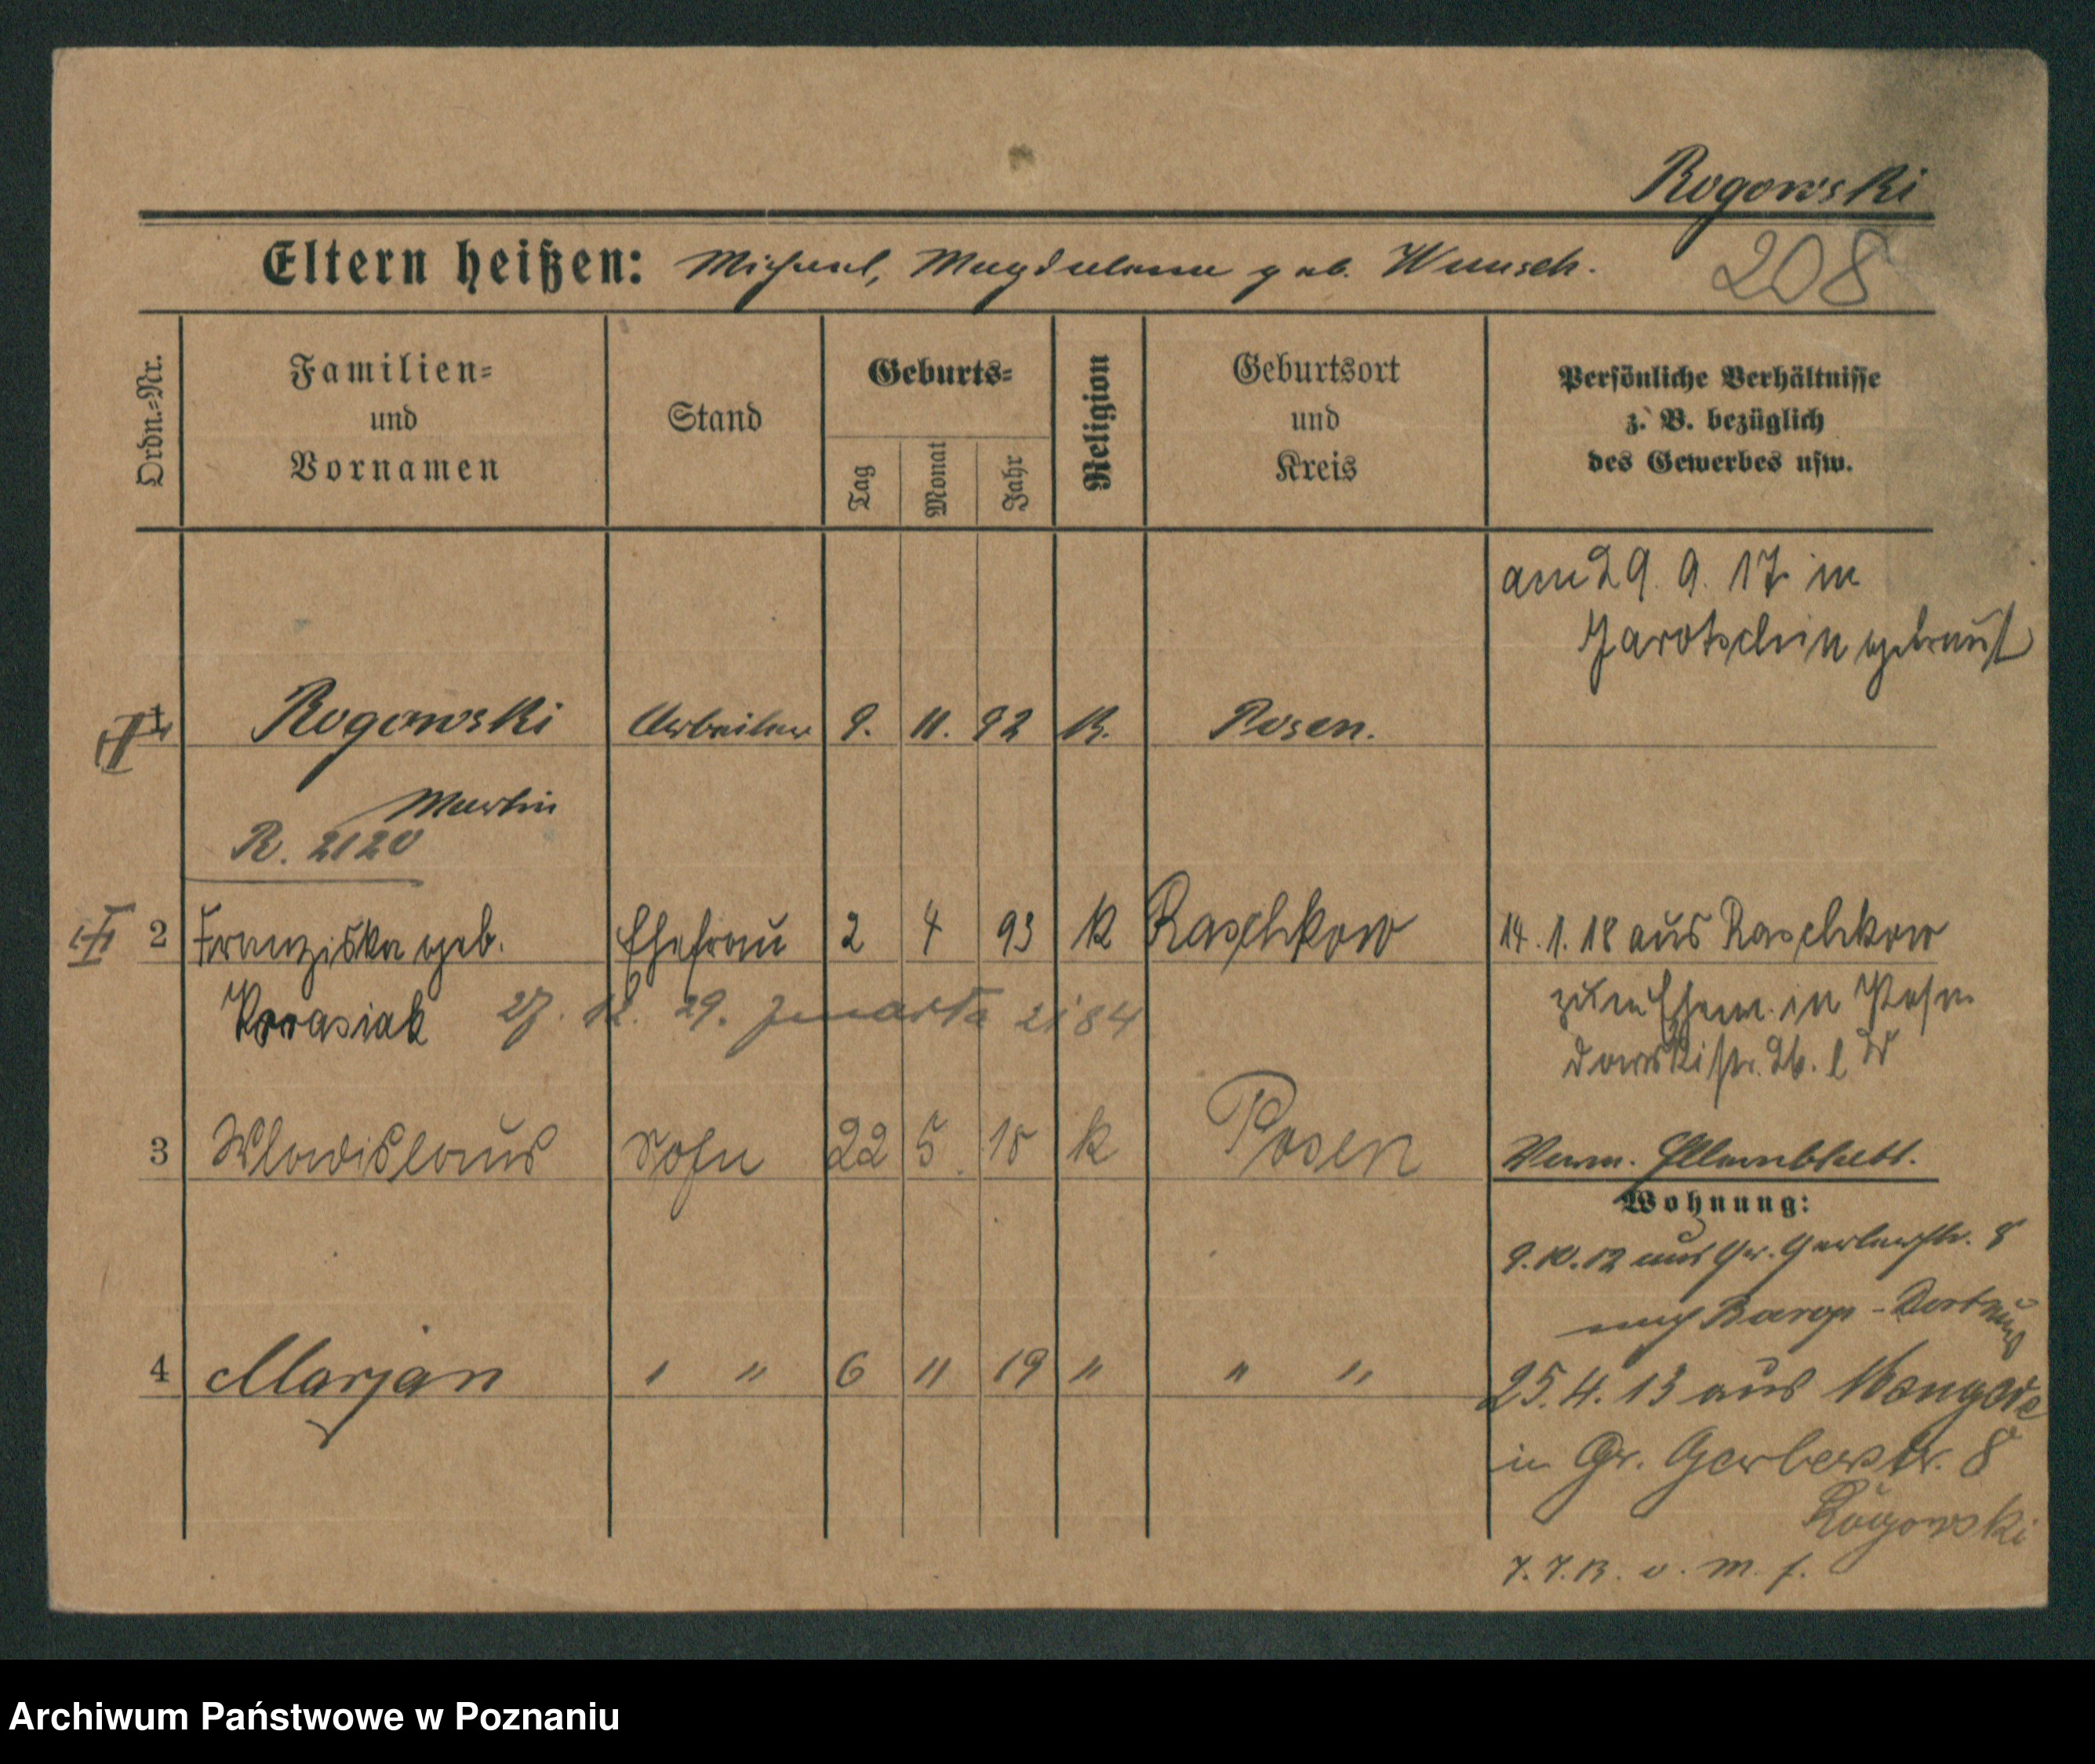 Rogowski
Eltern heißen: Michael, Magdalena geb. Wunsch.
208
Ordn.-Nr.
Familien-
und
Vornamen
Stand
Geburts-
Tag
Monat
Jahr
Religion
Geburtsort
und
Kreis
Persönliche Verhältnisse
z. B. bezüglich
des Gewerbes usw.
am 29. 9. 17 in
Jarotschin getraut
1 Rogowski Arbeiter 9. 11. 92 K. Posen.
Martin
R. 2120
2 Franziska geb. Ehefrau 2 4 93 K Raschkow 14. 1. 18 aus Raschkow
27. 12. 29. zmarła 2184
zum Ehem. in Posen
3 Wladislaus Sohn 22 5. 18 K Posen Verm. Elternblatt.
Wohnung:
9. 10. 12 aus Gr. Gerberstr. 8
nach Barop - Dortmund
4 Marjan " " 6 11 19 " " "
25. 4. 13 aus
in Gr. Gerberstr. 8
Rogowski